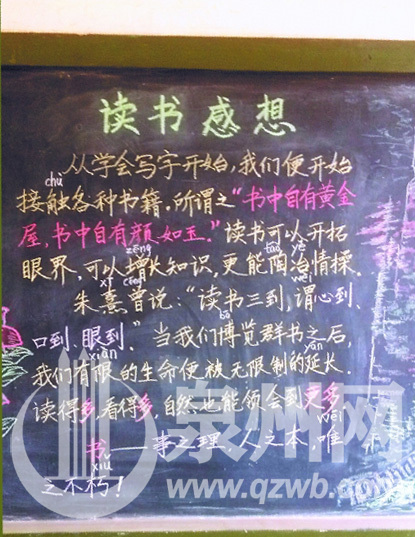 读书感想
从学会写字开始，我们便开始
chù
接触各种书籍，所谓之“书中自有黄金
屋，书中自有颜如玉。”读书可以开拓
zēng táo yě
眼界，可以增长知识，更能陶冶情操。
xī céng wèi
朱熹曾说：“读书三到，谓心到、
bó
口到、眼到。”当我们博览群书之后，
xiàn yán
我们有限的生命便被无限制的延长。
读得多，看得多，自然也能领会到更多。
wéi
书——事之理、人之本，唯
xiǔ
之不朽！
泉州网
www.qzwb.c